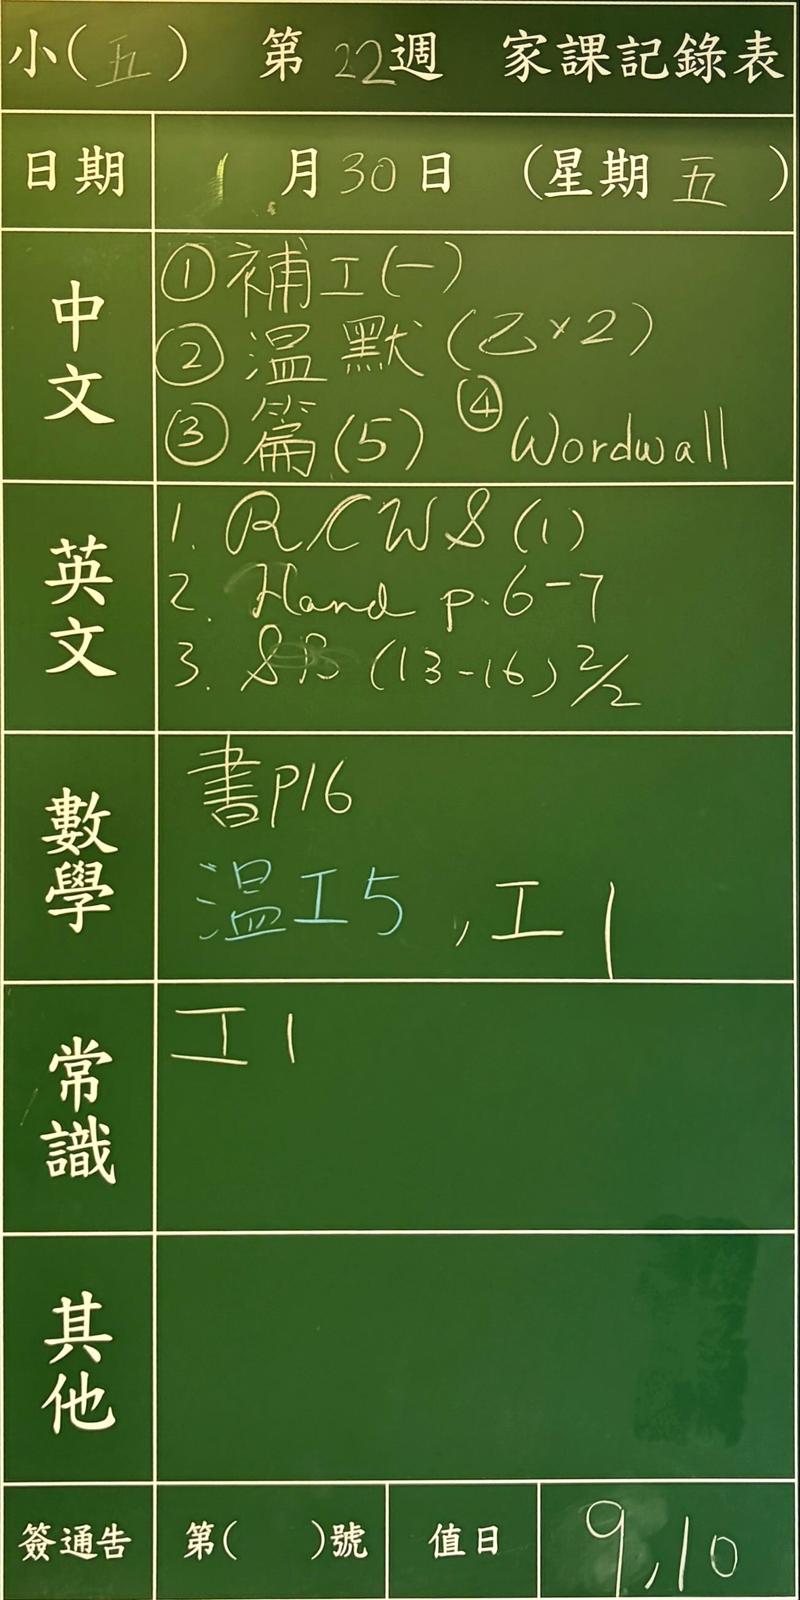 小(五) 第22週 家課記錄表
日期 1月30日 (星期五)
中文
①補工(一)
②温默(乙×2)
③篇(5) ④Wordwall
英文
1. RCWS(1)
2. Hand p.6-7
3. SB (13-16) 2/2
數學
書P16
温工5, 工1
常識
工1
其他
簽通告 第( )號 值日 9,10